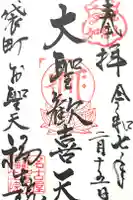 奉拝
令和七年
二月十五日
大聖歓喜天
袋町お聖天
福生院